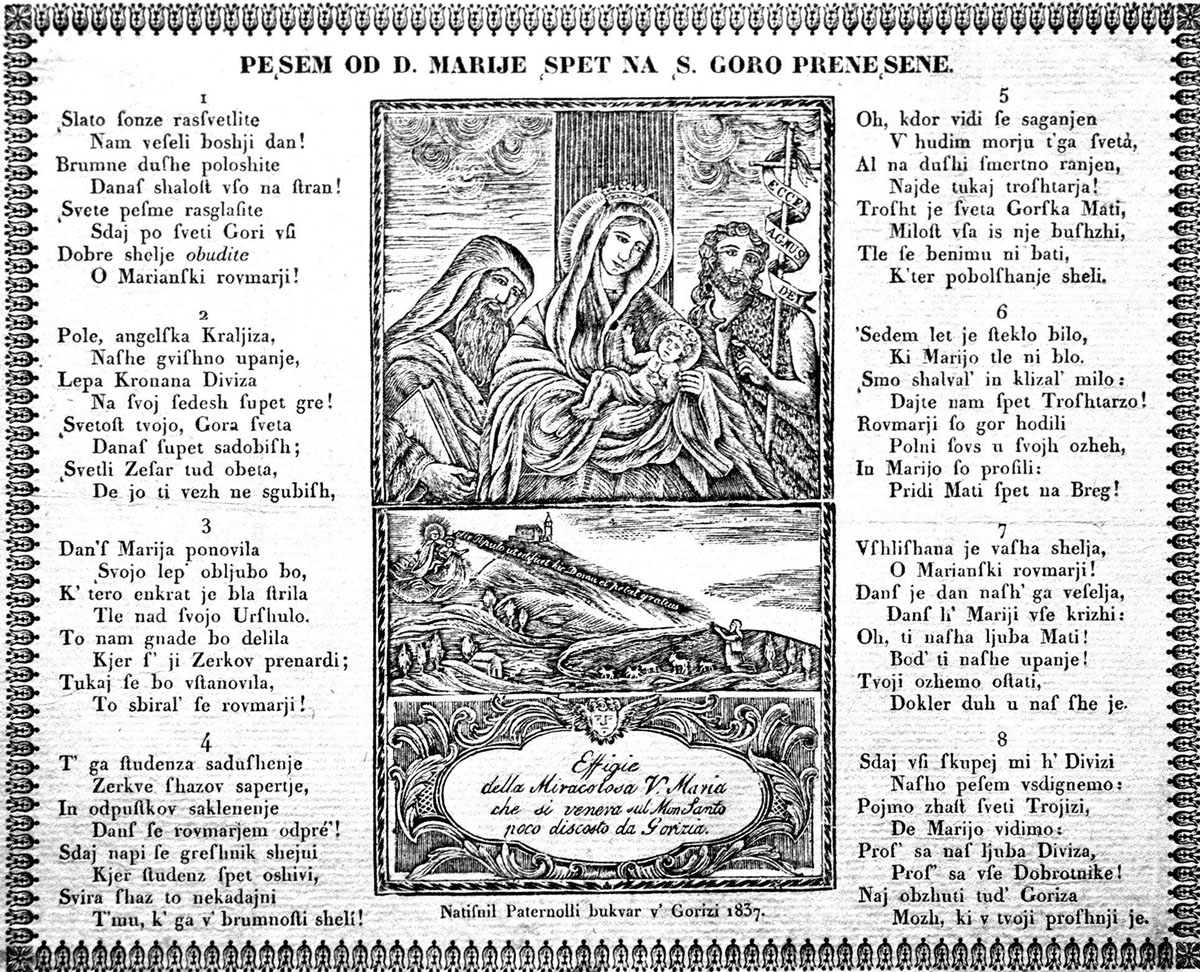 PEſSEM OD D. MARIJE ſSPET NA ſS. GORO PRENEſSENE.
1
ſSlato ſonze rasſvetlite
Nam veſeli boshji dan!
Brumne duſhe poloshite
Danaſ shaloſt vſo na ſtran!
ſSvete peſme rasglaſite
Sdaj po ſveti Gori vſi
Dobre shelje obudite
O Marianſki rovmarji!
2
Pole, angelſka Kraljiza,
Naſhe gviſhno upanje,
Lepa Kronana Diviza
Na ſvoj ſedesh ſupet gre!
ſSvetoſt tvojo, Gora ſveta
Danaſ ſupet sadobiſh;
ſSvetli Zeſar tud obeta,
De jo ti vezh ne sgubiſh,
3
Dan'ſ Marija ponovila
ſSvojo lep' obljubo bo,
K' tero enkrat je bla ſtrila
Tle nad ſvojo Urſhulo.
To nam gnade bo delila
Kjer ſ' ji Zerkov prenardi;
Tukaj ſe bo vſtanovila,
To sbiral' ſe rovmarji!
4
T' ga ſtudenza saduſhenje
Zerkve ſhazov sapertje,
In odpuſtkov saklenenje
Danſ ſe rovmarjem odpré'!
Sdaj napi ſe greſhnik shejni
Kjer ſtudenz ſpet oshivi,
Svira ſhaz to nekadajni
T'mu, k' ga v' brumnoſti shelí!
ECCE
AGNUS
DEI
Effigie
della Miracolosa V. Maria
che si venera sul Mon Santo
poco discosto da Gorizia.
Natiſnil Paternolli bukvar v' Gorizi 1837.
5
Oh, kdor vidi ſe saganjen
V' hudim morju t'ga ſvetà,
Al na duſhi ſmertno ranjen,
Najde tukaj troſhtarja!
Troſht je ſveta Gorſka Mati,
Miloſt vſa is nje buſhzhi,
Tle ſe benimu ni bati,
K'ter pobolſhanje sheli.
6
'Sedem let je ſteklo bilo,
Ki Marijo tle ni blo.
ſSmo shalval' in klizal' milo:
Dajte nam ſpet Troſhtarzo!
Rovmarji ſo gor hodili
Polni ſovs u ſvojh ozheh,
In Marijo ſo proſili:
Pridi Mati ſpet na Breg!
7
Vſhliſhana je vaſha shelja,
O Marianſki rovmarji!
Danſ je dan naſh' ga veſelja,
Danſ h' Mariji vſe krizhi:
Oh, ti naſha ljuba Mati!
Bod' ti naſhe upanje!
Tvoji ozhemo oſtati,
Dokler duh u naſ ſhe je.
8
Sdaj vſi ſkupej mi h' Divizi
Naſho peſem vsdignemo:
Pojmo zhaſt ſveti Trojizi,
De Marijo vidimo:
Proſ' sa naſ ljuba Diviza,
Proſ' sa vſe Dobrotnike!
Naj obzhuti tud' Goriza
Mozh, ki v tvoji proſhnji je.